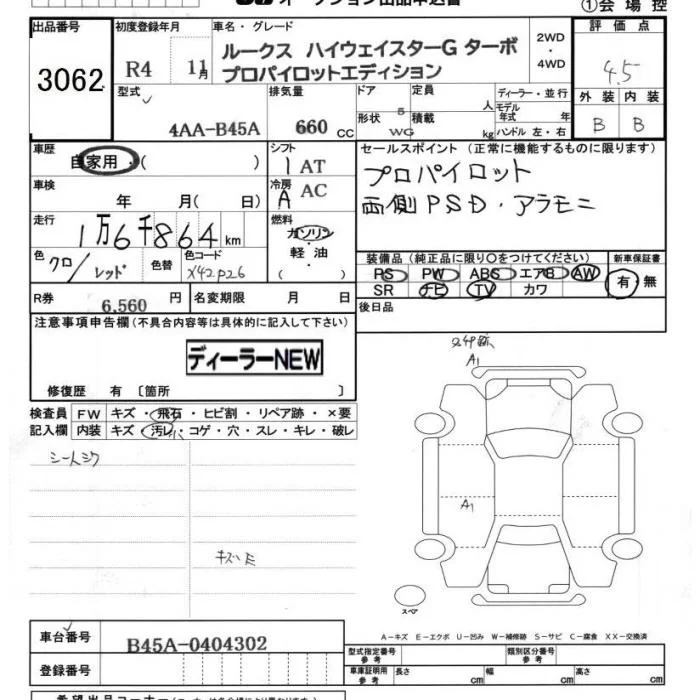 オークション出品申込書
①会場控
出品番号 初度登録年月 車名・グレード 評価点
3062 R4 11月 ルークス ハイウェイスターG ターボ 2WD・4WD 4.5
プロパイロットエディション
型式 排気量 ドア 定員 人 ディーラー・並行 外装 内装
4AA-B45A 660 CC 5 モデル年式 年 B B
形状 WG 積載 kg ハンドル 左・右
車歴 自家用・( ) シフト 1 AT セールスポイント (正常に機能するものに限ります)
車検 年 月(日) 冷房 A AC プロパイロット
両側PSD・アラモニ
走行 1万6千864km 燃料 ガソリン・軽油・( )
色 クロ/レッド 色替 色コード X42P26
装備品 (純正品に限り○をつけてください) 新車保証書
PS PW ABS エアB AW 有・無
SR ナビ TV カワ
R券 6,560円 名変期限 月 日 後日品
注意事項申告欄 (不具合内容等は具体的に記入して下さい)
ディーラーNEW
修復歴 有 〔箇所 〕
検査員 FW キズ・飛石・ヒビ割・リペア跡・×要
記入欄 内装 キズ・汚レ・コゲ・穴・スレ・キレ・破レ
A1
A1
スペア
A-キズ E-エクボ U-凹み W-補修跡 S-サビ C-腐食 XX-交換済
車台番号 B45A-0404302
登録番号
型式指定番号 参考 類別区分番号 参考
車庫証明用 参考 長さ cm 幅 cm 高さ cm
希望出品コーナー